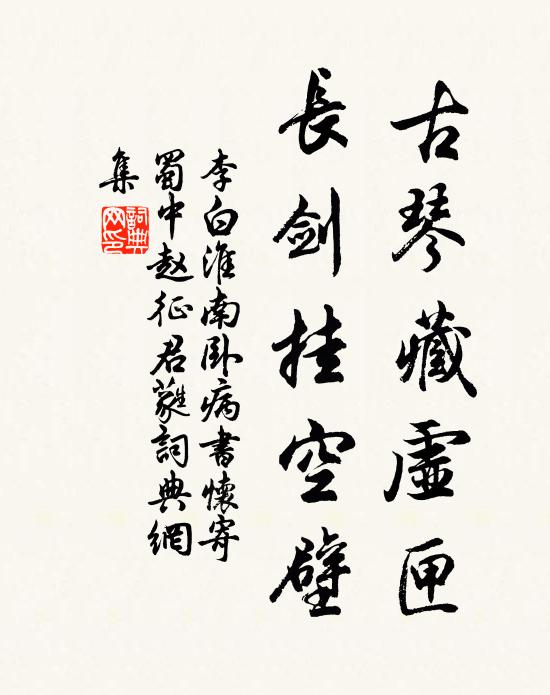 古琴藏虛匣
長劍挂空壁
李白淮南卧病書懷寄
蜀中赵征君蕤詞典網
集
詞典
网印